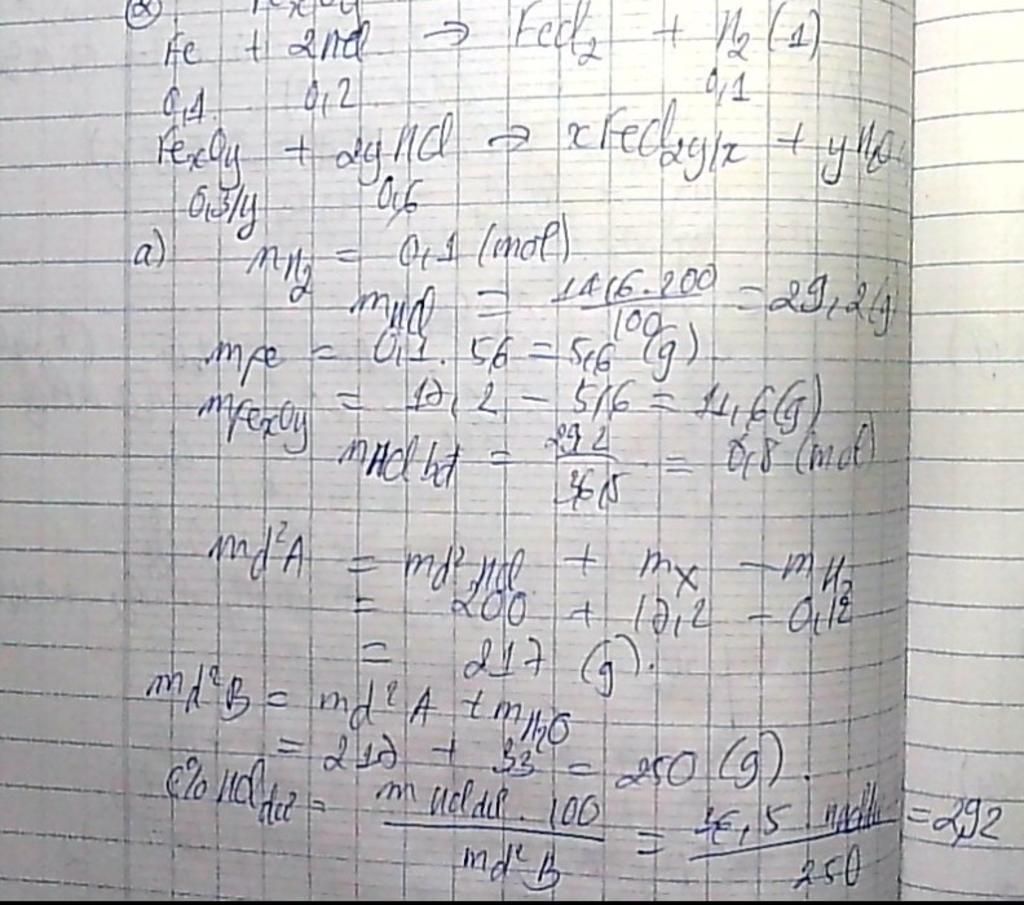 ② FexOy
Fe + 2HCl → FeCl2 + H2 (1)
0,1 0,2 0,1
FexOy + 2yHCl → xFeCl2y/x + yH2O
0,3/y 0,6
a) nH2 = 0,1 (mol)
mHCl = 14,6.200/100 = 29,2(g)
mFe = 0,1.56 = 5,6 (g)
mFexOy = 17,2 - 5,6 = 11,6(g)
nHCl bđ = 29,2/36,5 = 0,8 (mol)
md²A = md²HCl + mX - mH2
= 200 + 17,2 - 0,12
= 217 (g).
md²B = md²A + mH2O
= 217 + 33 = 250 (g).
C% HCl dư = m HCl dư . 100 / md²B = 36,5 / 250 = 2,92